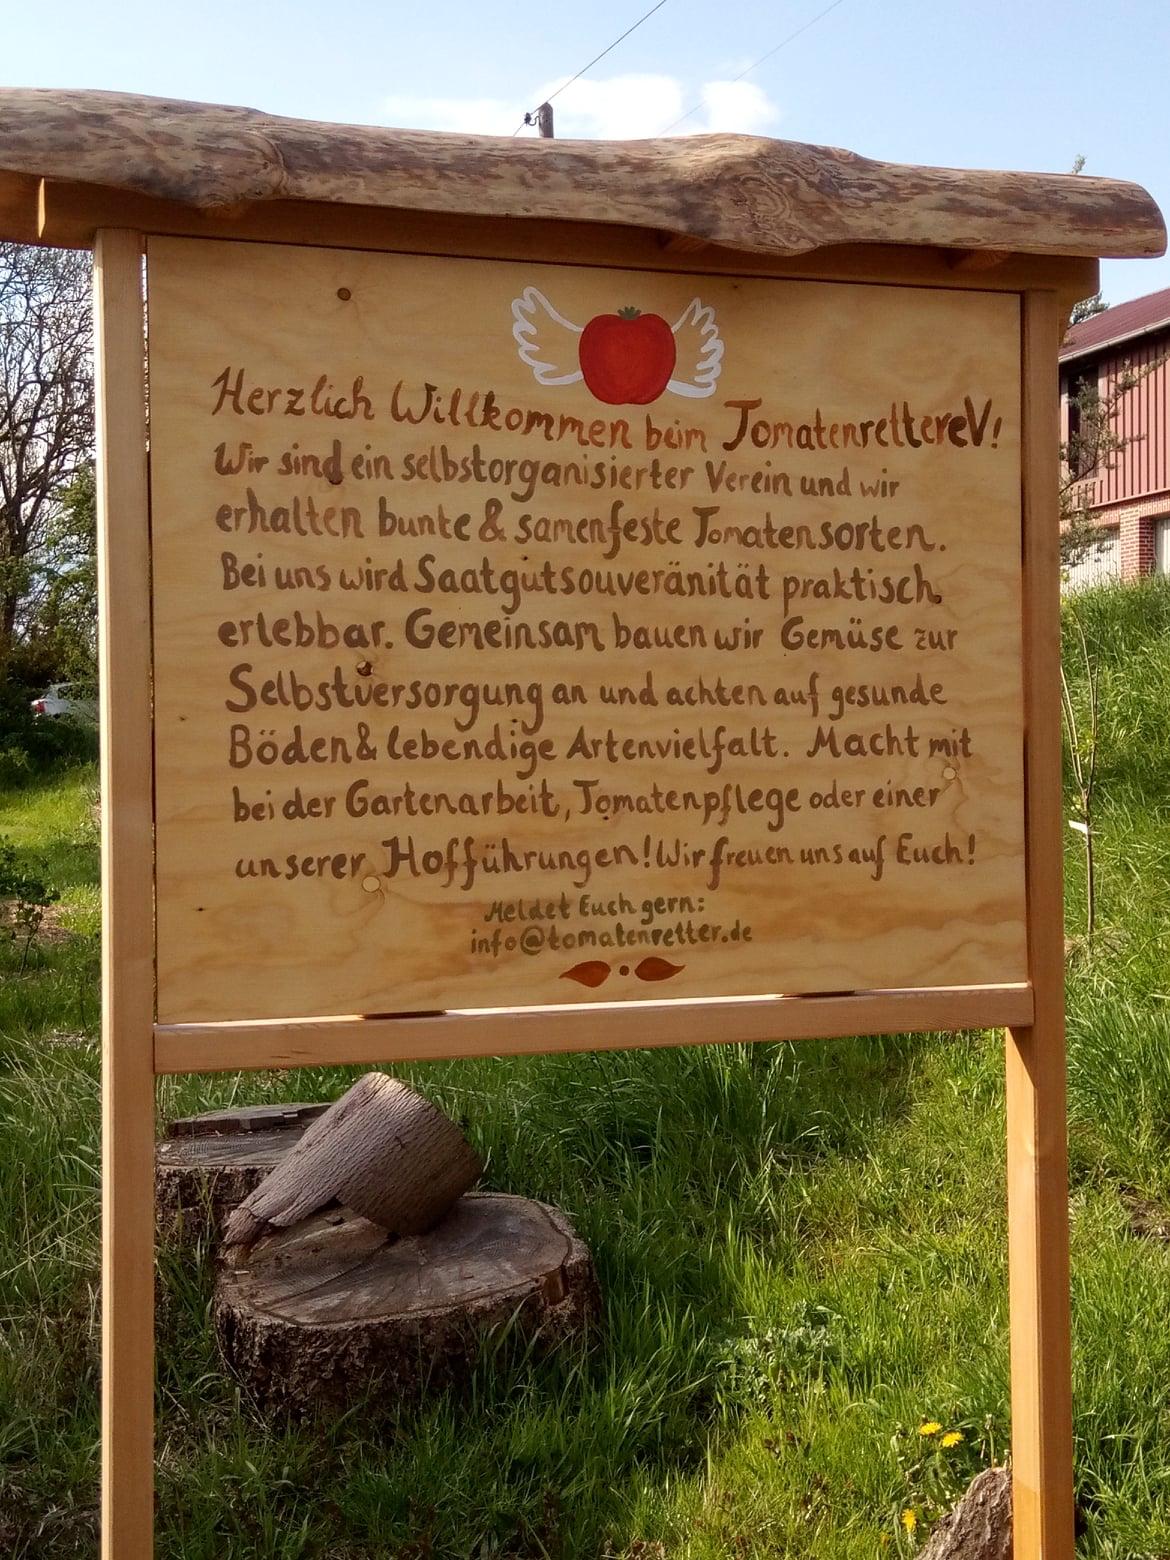 Herzlich Willkommen beim TomatenrettereV!
Wir sind ein selbstorganisierter Verein und wir
erhalten bunte & samenfeste Tomatensorten.
Bei uns wird Saatgutsouveränität praktisch
erlebbar. Gemeinsam bauen wir Gemüse zur
Selbstversorgung an und achten auf gesunde
Böden & lebendige Artenvielfalt. Macht mit
bei der Gartenarbeit, Tomatenpflege oder einer
unserer Hofführungen! Wir freuen uns auf Euch!
Meldet Euch gern:
info@tomatenretter.de